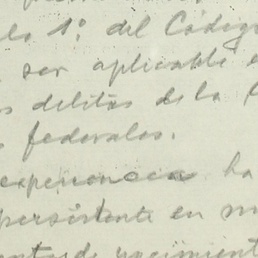 lo 1º. del Códig
ser aplicable e
s delitos de la f
s federales.
experiencia ha
persistente en m
de nacimient